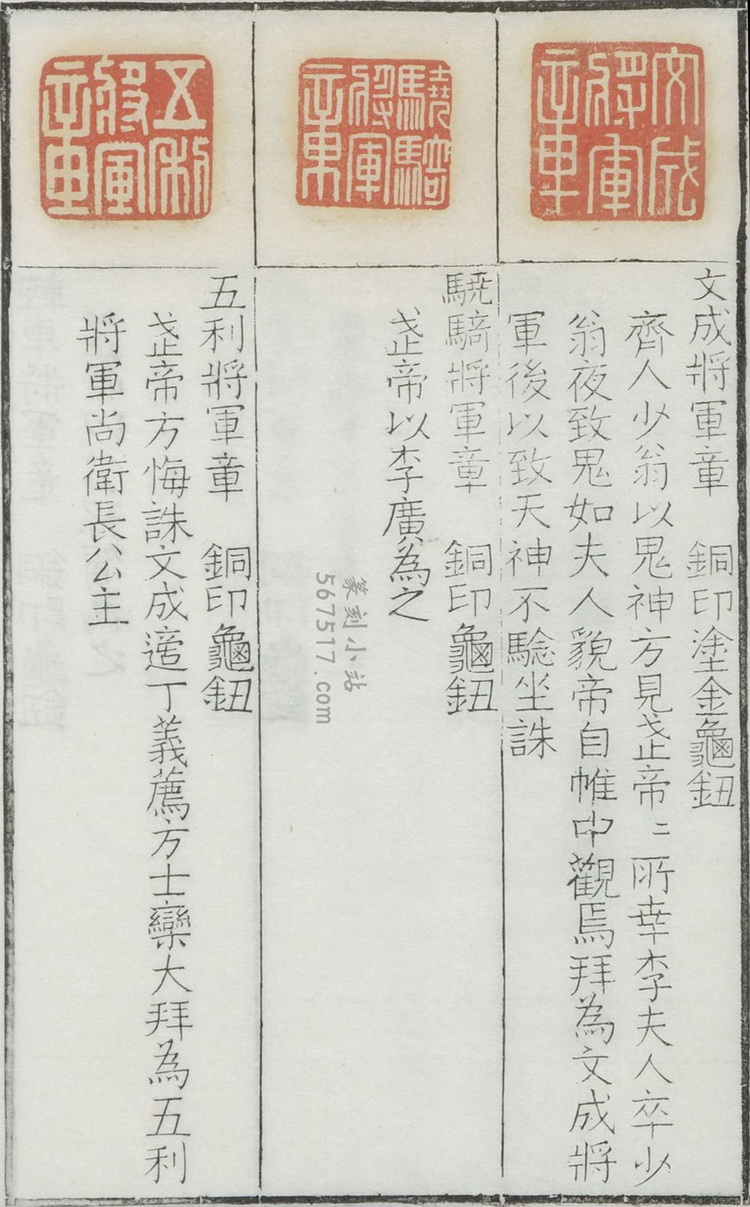 文成將軍章
文成將軍章　銅印塗金龜鈕
齊人少翁以鬼神方見武帝〻所幸李夫人卒少
翁夜致鬼如夫人貌帝自帷中觀焉拜為文成將
軍後以致天神不驗坐誅
驍騎將軍章
驍騎將軍章　銅印龜鈕
武帝以李廣為之
五利將軍章
五利將軍章　銅印龜鈕
武帝方悔誅文成適丁義薦方士欒大拜為五利
將軍尚衛長公主
篆刻小站
567517.com